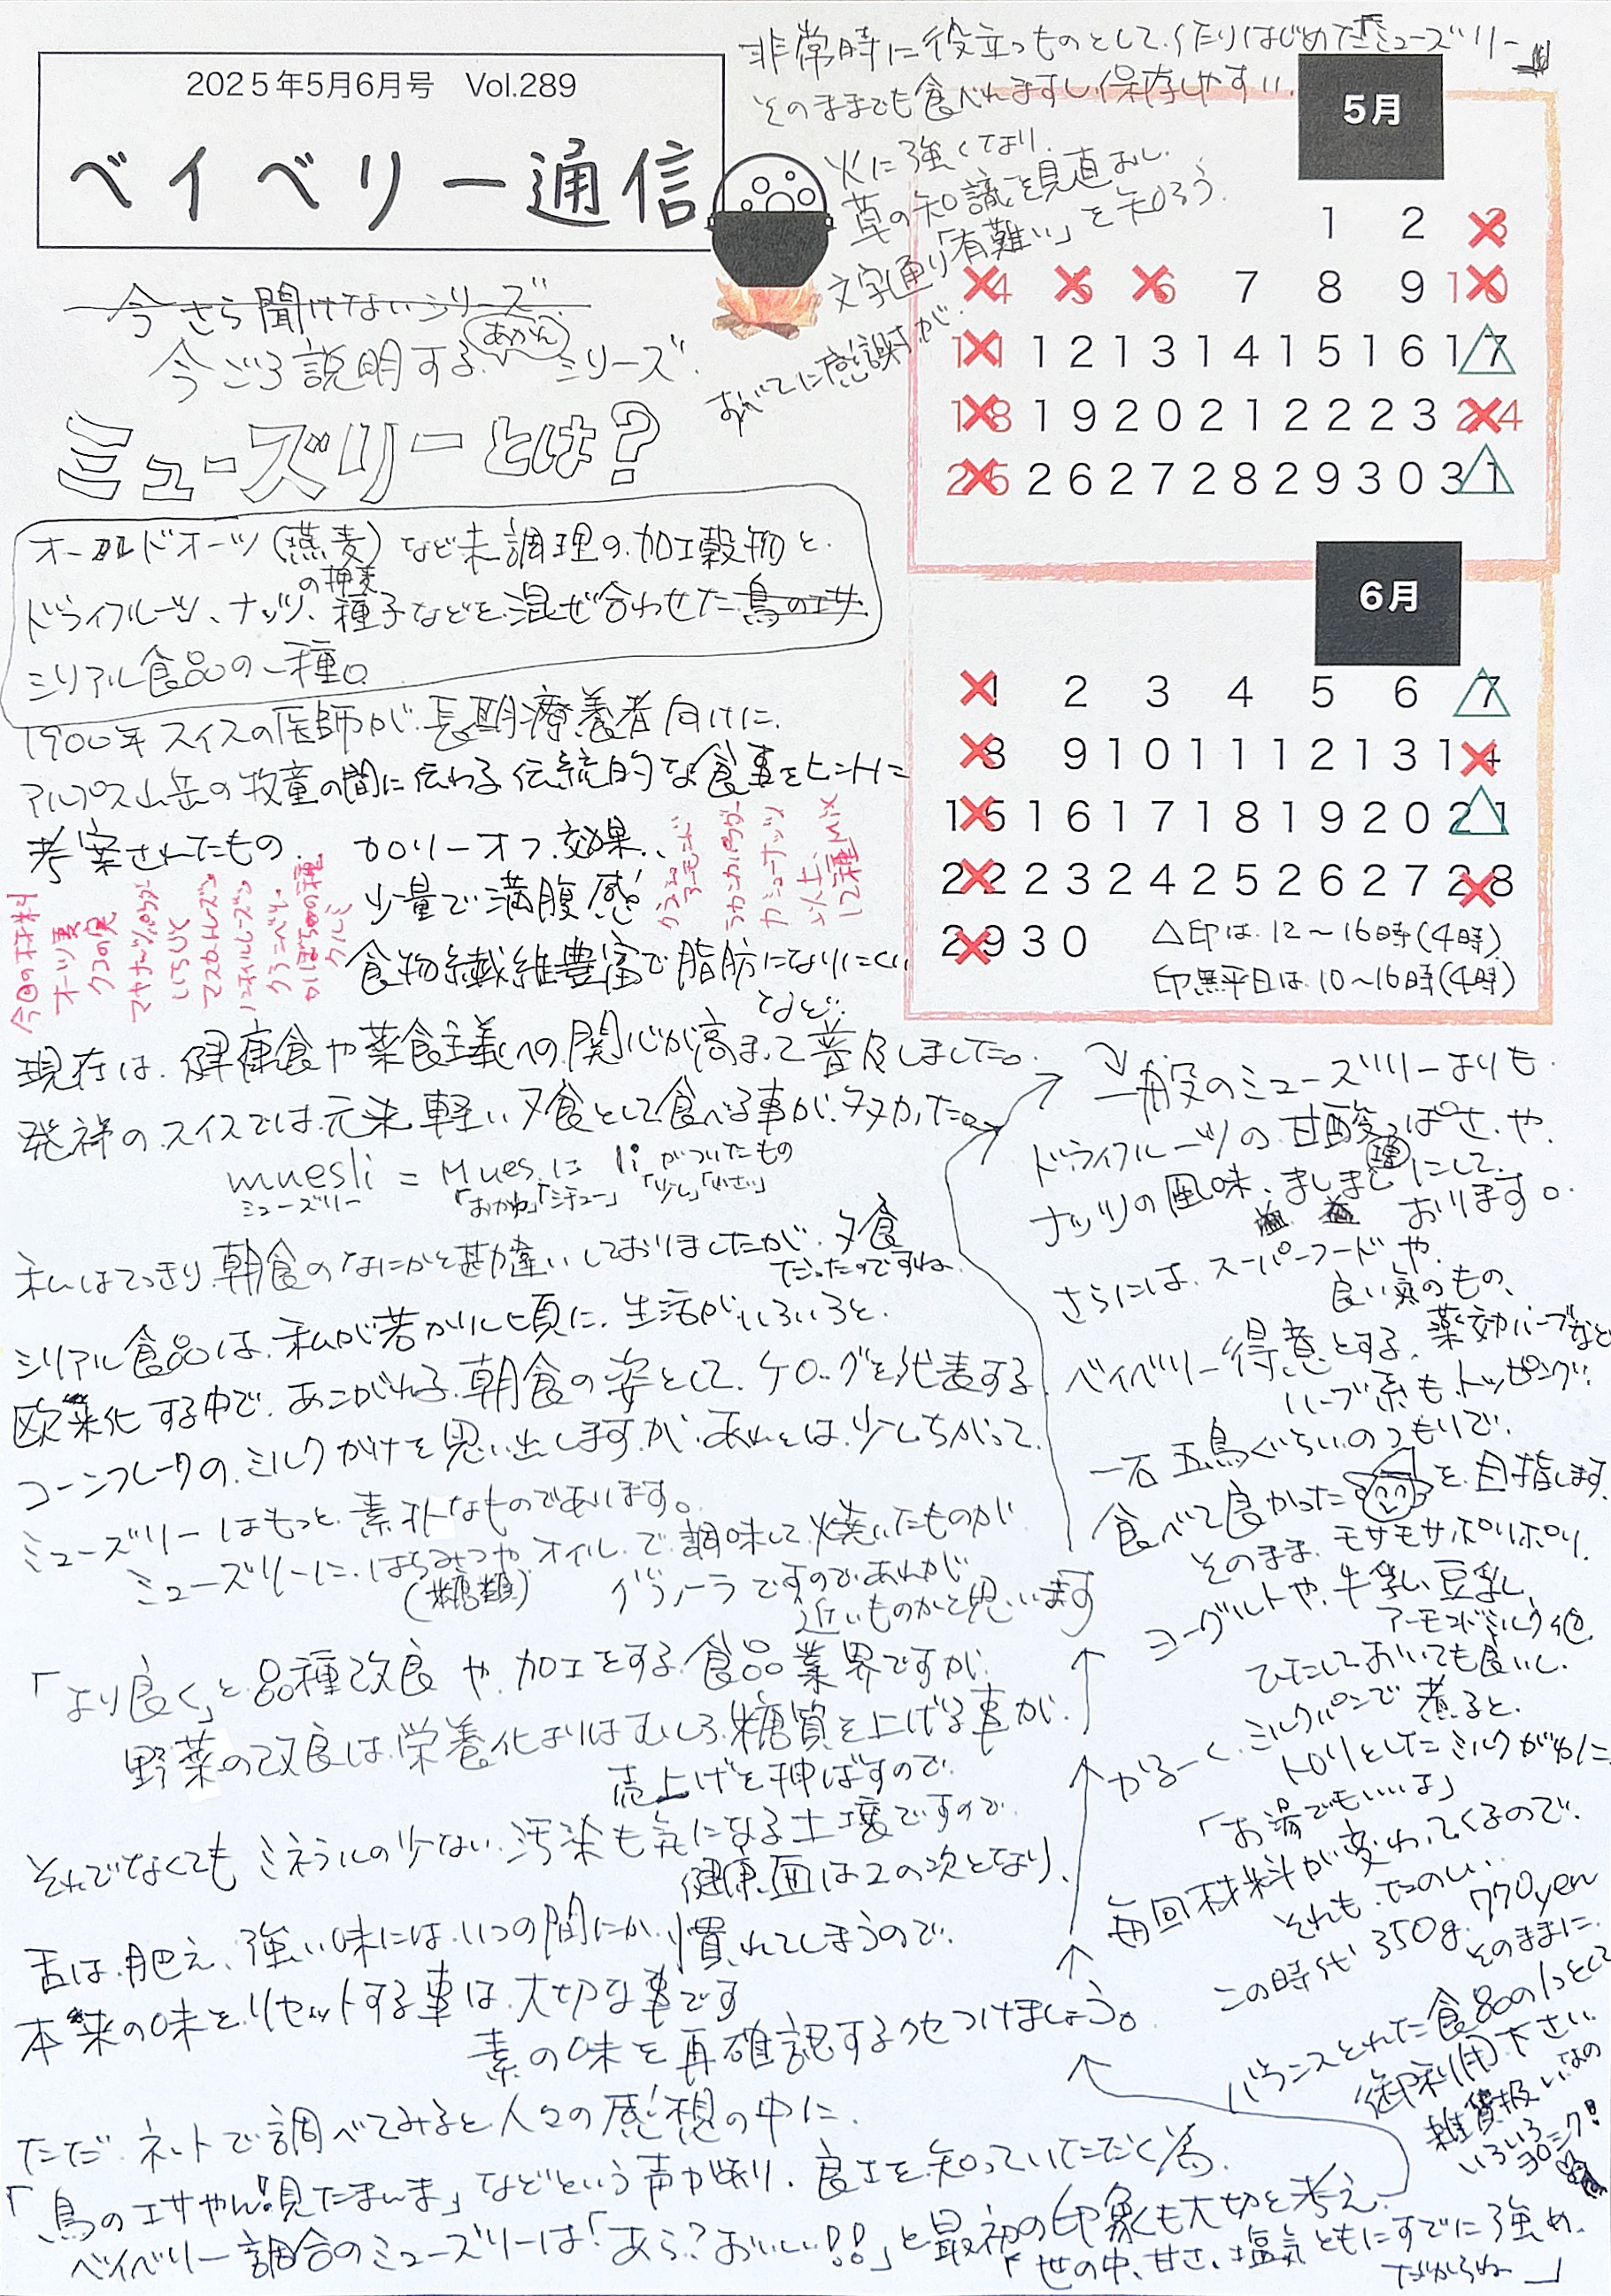 2025年5月6月号 Vol.289
ベイベリー通信
非常時に役立つものとして作りはじめた「ミューズリー」
そのままでも食べれますし保存しやすい。
火に強くなり、
草の知識を見直おし、
文字通り「有難い」を知ろう。
すべてに感謝すが、
今さら聞けないシリーズ
今ごろ説明する(あかん)シリーズ
ミューズリーとは?
オールドオーツ(燕麦)など未調理の加工穀物と
の押麦
ドライフルーツ、ナッツ、種子などを混ぜ合わせた鳥のエサ
シリアル食品の一種。
1900年スイスの医師が長期療養者向けに
アルプス山岳の牧童の間に伝わる伝統的な食事をヒントに
考案されたもの。 カロリーオフ効果、
少量で満腹感
食物繊維豊富で脂肪になりにくい
などど…
今回の材料
オーツ麦
クコの実
いちじく
マスカットレーズン
クランベリー
かぼちゃの種
クルミ
ココアパウダー
カシューナッツ
以上、
12種MIX
現在は、健康食や菜食主義への関心が高まって普及しました。
発祥のスイスでは元来、軽い夕食として食べる事が多かった。
muesli = Muesに li がついたもの
ミューズリー 「おかゆ」「シチュー」 「少し」「小さい」
私はてっきり朝食のなにかと勘違いしておりましたが、夕食
だったのですね
シリアル食品は、私が若かりし頃に、生活がいろいろと
欧米化する中で、あこがれる朝食の姿として、ケロッグを代表する
コーンフレークのミルクがけを思い出しますが、あれとは少しちがって、
ミューズリーはもっと素朴なものであります。
ミューズリーに、はちみつやオイルで調味して焼いたものが
(糖類) グラノーラですので、あれが
近いものかと思います
「より良く」と品種改良や加工をする食品業界ですが、
野菜の改良は栄養化よりはむしろ糖質を上げる事が
売上げを伸ばすので、
それでなくてもミネラルの少ない、汚染も気になる土壌ですので
健康面は2の次となり、
舌は肥え、強い味には、いつの間にか慣れてしまうので、
本来の味をリセットする事は大切な事です
素の味を再確認するくせつけましょう。
ただ、ネットで調べてみると人々の感想の中に、
「鳥のエサやん!!見たまんま」などという声が在り、良さを知っていただく為、
ベイベリー調合のミューズリーは「あら?おいしい!!」と最初の印象も大切と考え
「世の中、甘さ、塩気ともにすでに強め
だからね」
5月
1 2 3
4 5 6 7 8 9 10
11 12 13 14 15 16 17
18 19 20 21 22 23 24
25 26 27 28 29 30 31
6月
1 2 3 4 5 6 7
8 9 10 11 12 13 14
15 16 17 18 19 20 21
22 23 24 25 26 27 28
29 30
△印は12〜16時(4時)
印無平日は10〜16時(4時)
一般のミューズリーよりも
ドライフルーツの甘酸っぱさや
ナッツの風味、ましましにして
増 おります。
さらには、スーパーフードや
良い気のもの、
ベイベリー得意とする、薬効ハーブなど
ハーブ系もトッピング!
一石五鳥ぐらいのつもりで、
食べて良かったを目指します
そのまま モサモサ ポリポリ
ヨーグルトや、牛乳、豆乳、
アーモンドミルク他
ひたしておいても良いし、
かるーく、ミルクパンで煮ると、
トロリとしたミルクがゆに
「お湯でもいいよ」
毎回材料が変わってくるので、
それも、たのしい、
この時代 350g 770yen
そのままに
バランスとれた食品の1つとして
御利用下さい
雑貨扱いなの
いろいろヨロシク!